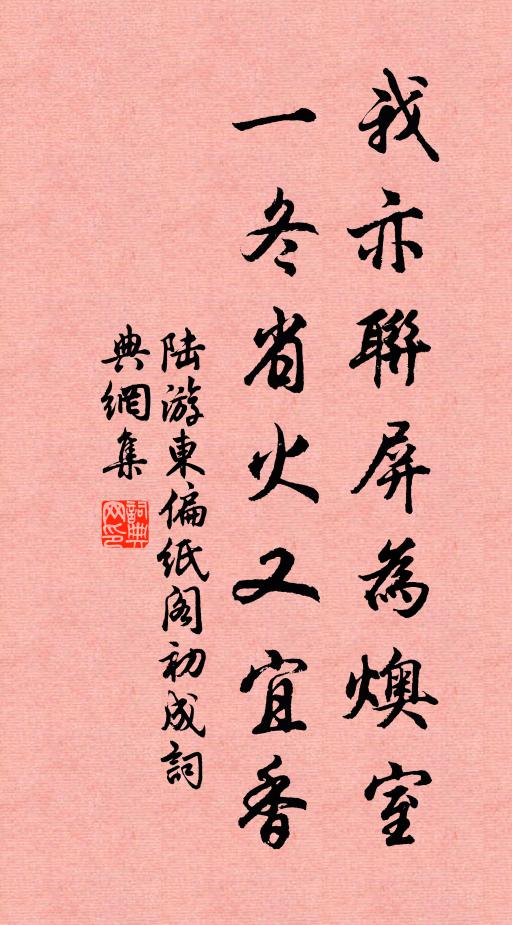 我亦聯屏為燠室
一冬省火又宜香
陸游東偏紙閣初成詞
典網集
詞典网印